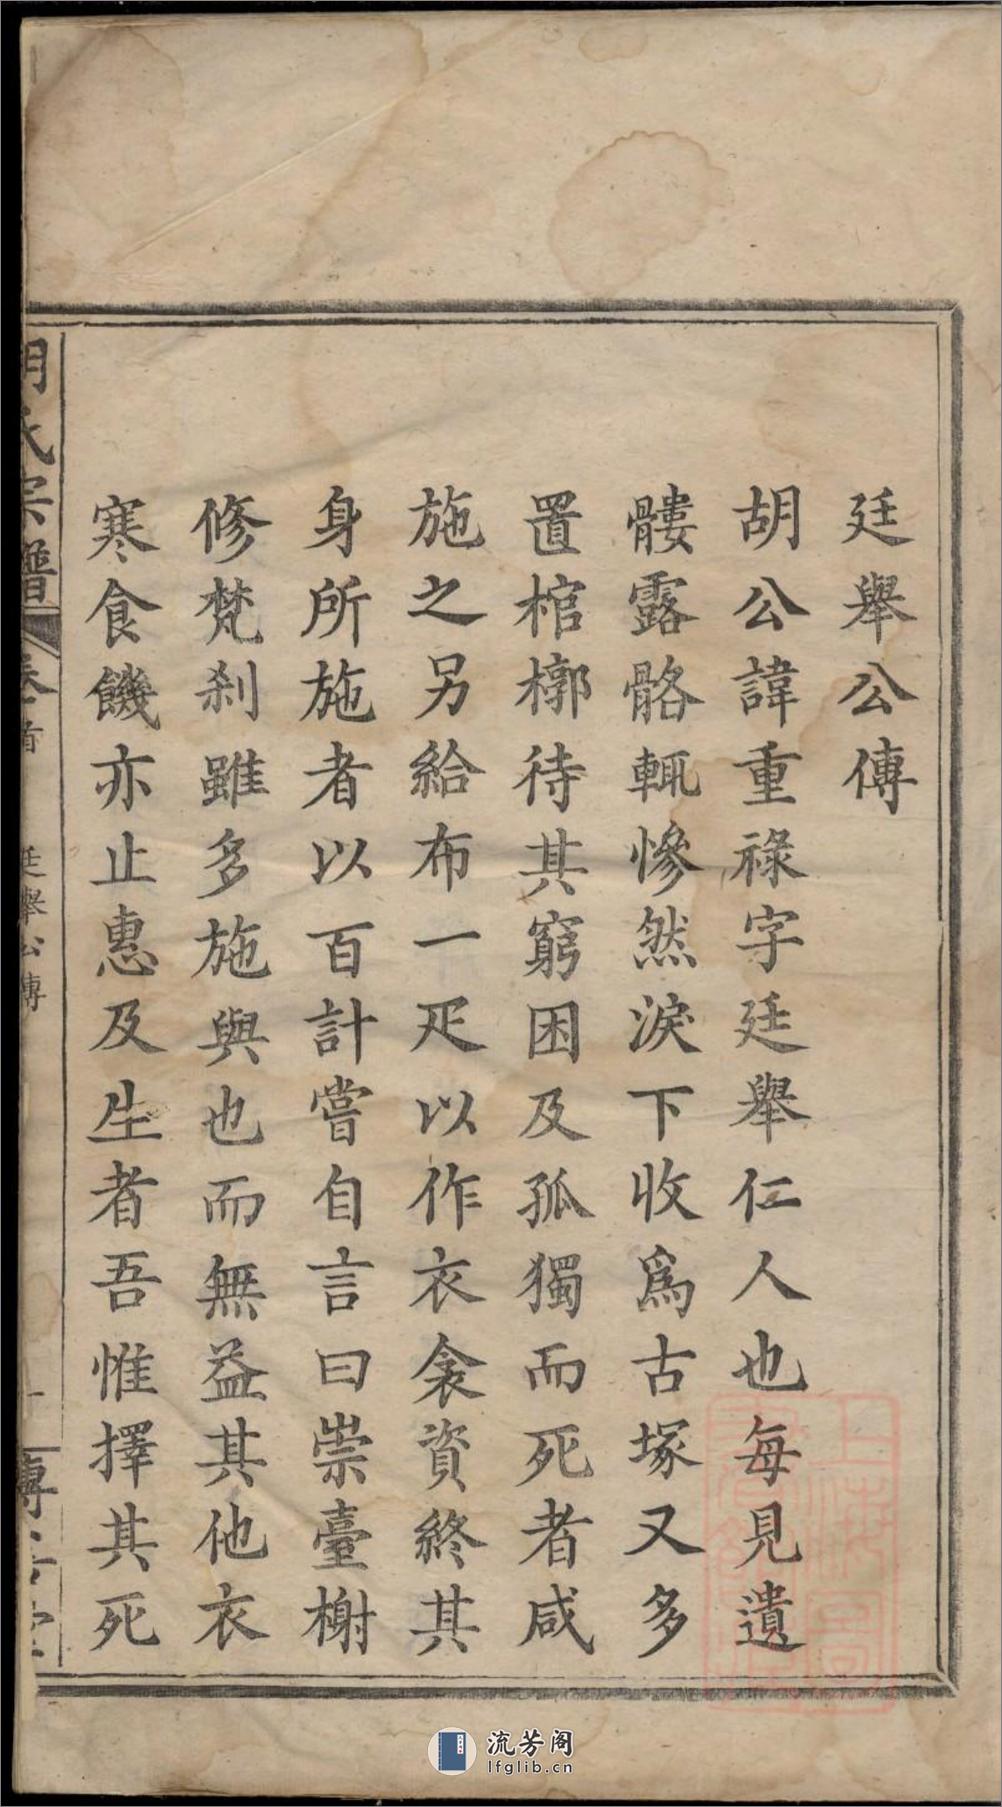 廷舉公傳
胡公諱重祿字廷舉仁人也每見遺
髏露骼輒慘然淚下收爲古塚又多
置棺槨待其窮困及孤獨而死者咸
施之另給布一疋以作衣衾資終其
身所施者以百計嘗自言曰崇臺榭
修梵刹雖多施與也而無益其他衣
寒食饑亦止惠及生者吾惟擇其死
胡氏宗譜
卷首
廷舉公傳
流芳阁
lfglib.cn